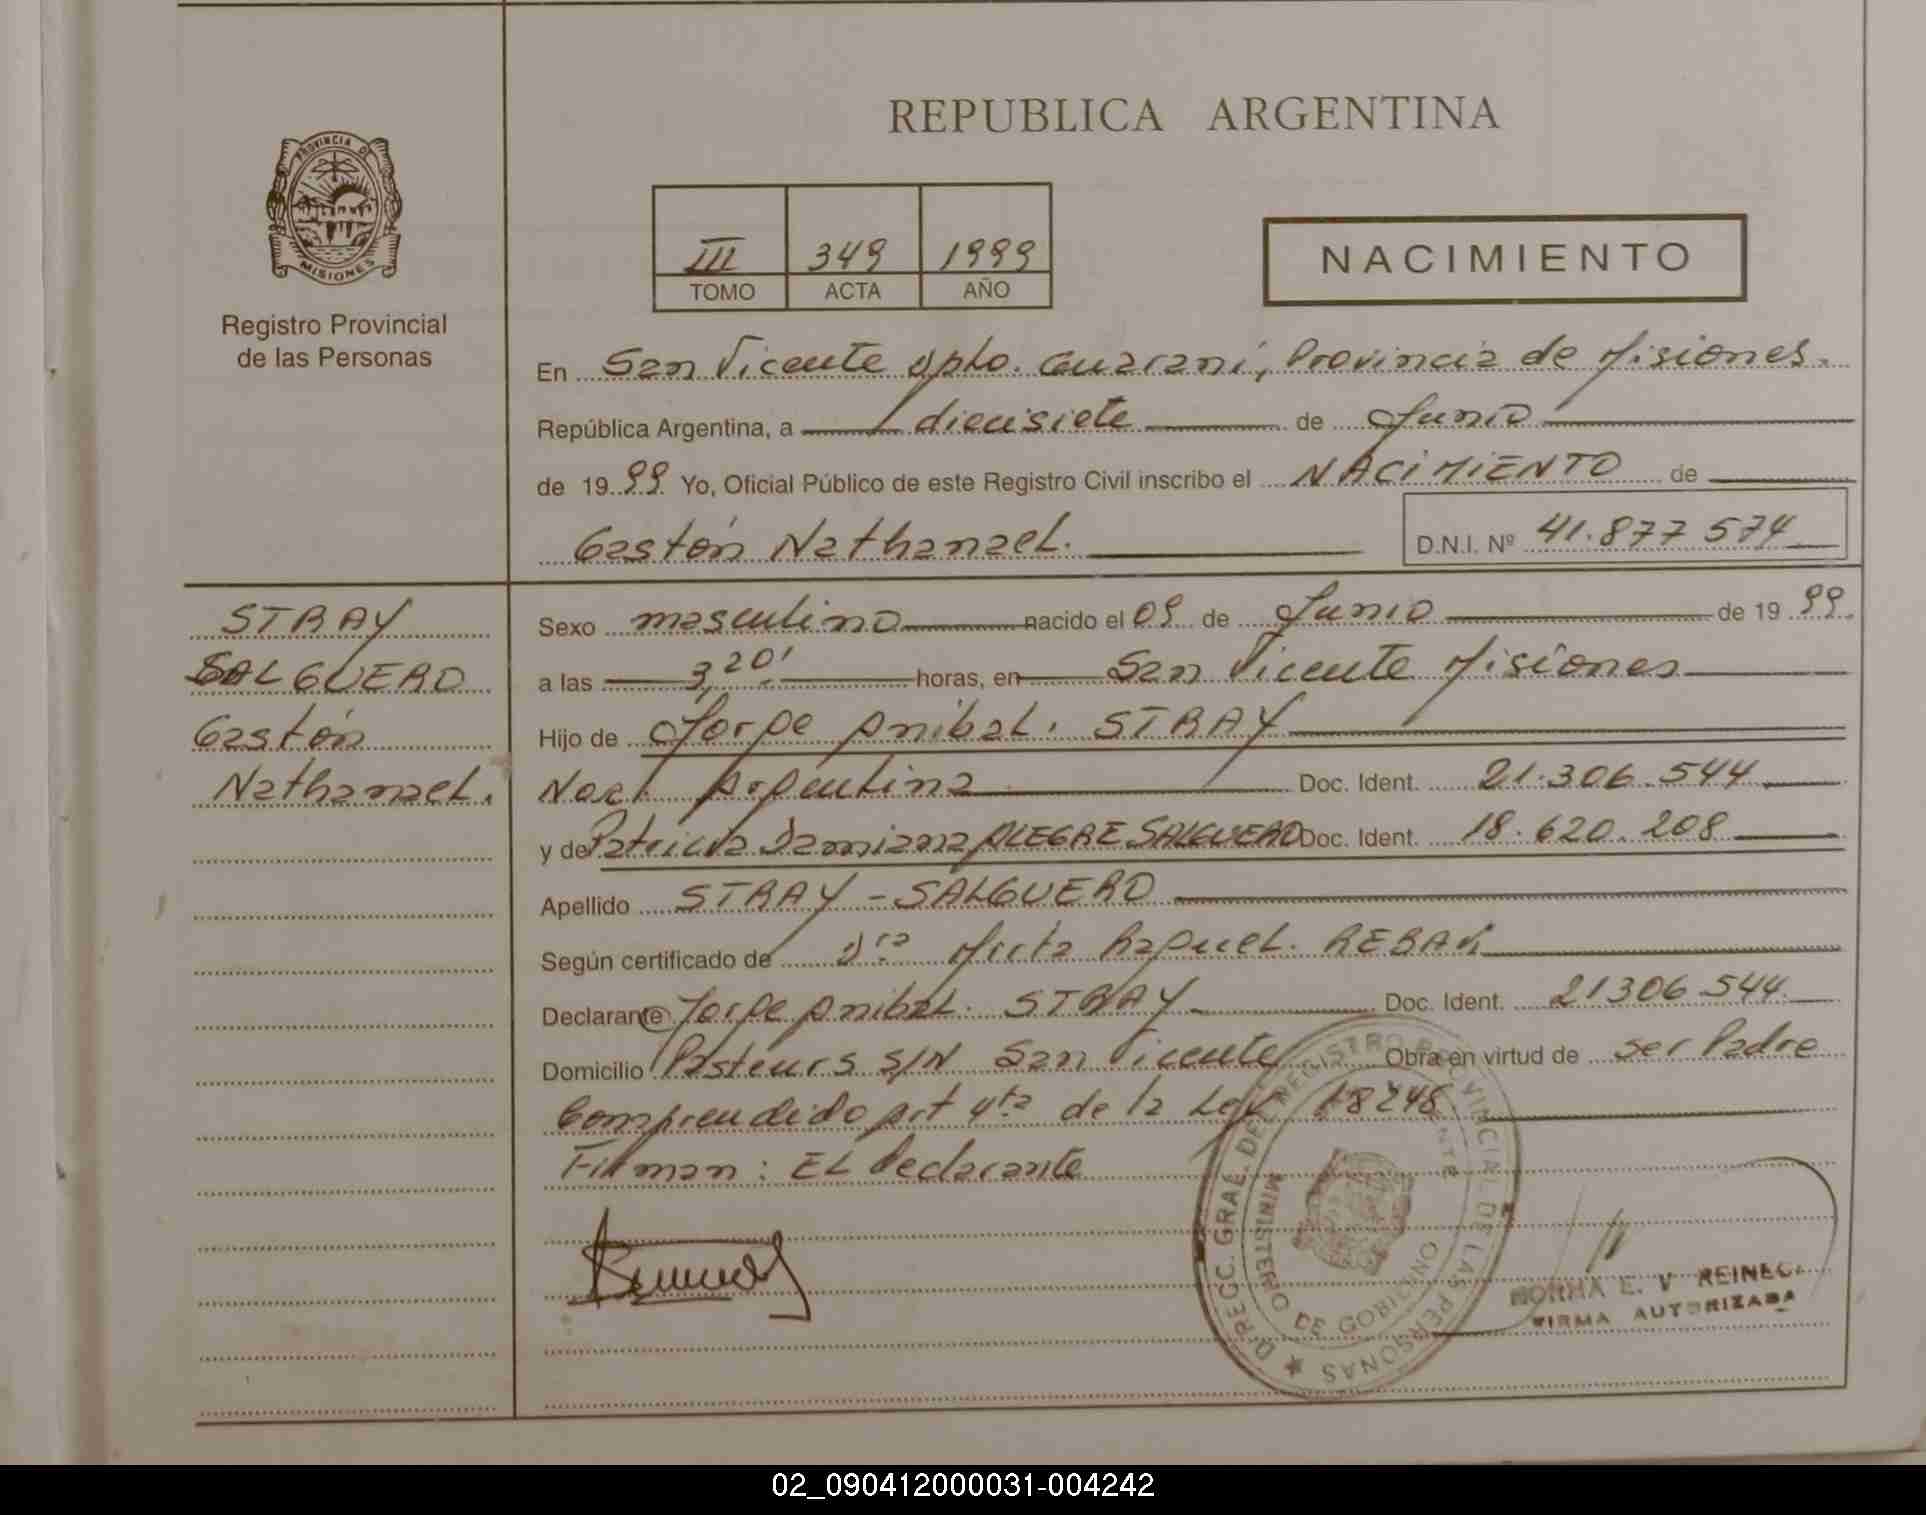 REPUBLICA ARGENTINA
PROVINCIA DE
MISIONES
Registro Provincial
de las Personas
III 349 1999
TOMO ACTA AÑO
NACIMIENTO
En San Vicente Dpto. Guaraní, Provincia de Misiones.
República Argentina, a diecisiete de Junio
de 1999 Yo, Oficial Público de este Registro Civil inscribo el NACIMIENTO de
Gastón Nathanael.
D.N.I. Nº 41.877 574
STRAY
SALGUERO
Gastón
Nathanael.
Sexo masculino nacido el 09 de Junio de 1999.
a las 3,20' horas, en San Vicente Misiones
Hijo de Jorge Anibal. STRAY
Nac. Argentina Doc. Ident. 21.306.544
y de Patricia Damiana ALEGRE SALGUERO Doc. Ident. 18.620.208
Apellido STRAY - SALGUERO
Según certificado de Dra Mirta Raquel.
Declarante Jorge Anibal. STRAY Doc. Ident. 21306.544
Domicilio Pasteurs S/N San Vicente Obra en virtud de ser Padre
Comprendido Art 4ta de la Ley 18248.
Firman: El Declarante
REGISTRO PROVINCIAL DE LAS PERSONAS
MINISTERIO DE GOBIERNO
NORMA E. V REINECK
FIRMA AUTORIZADA
02_090412000031-004242